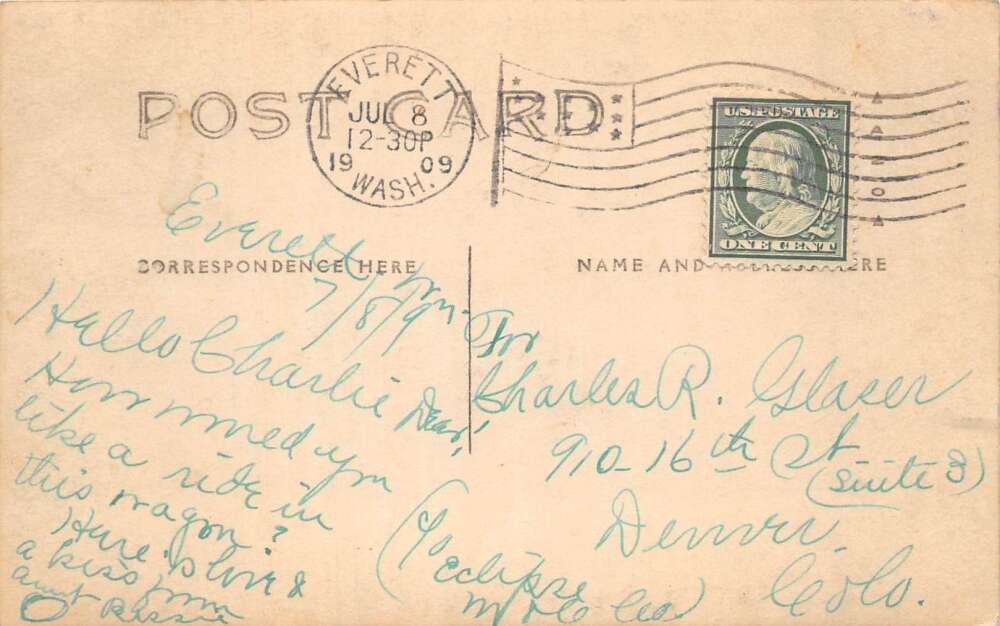 POST CARD
EVERETT
JUL 8
12-30P
1909
WASH.
U.S. POSTAGE
ONE CENT
CORRESPONDENCE HERE
NAME AND
RE
Everett, Wn.
7/8/9
Hello Charlie Dear,
How would you
like a ride in
this wagon?
Here is love &
a kiss from
aunt Bessie
O
For
Charles R. Glaser
910-16th St
(Suite 3)
Denver.
Colo.
(℅ Eclipse
M Co)